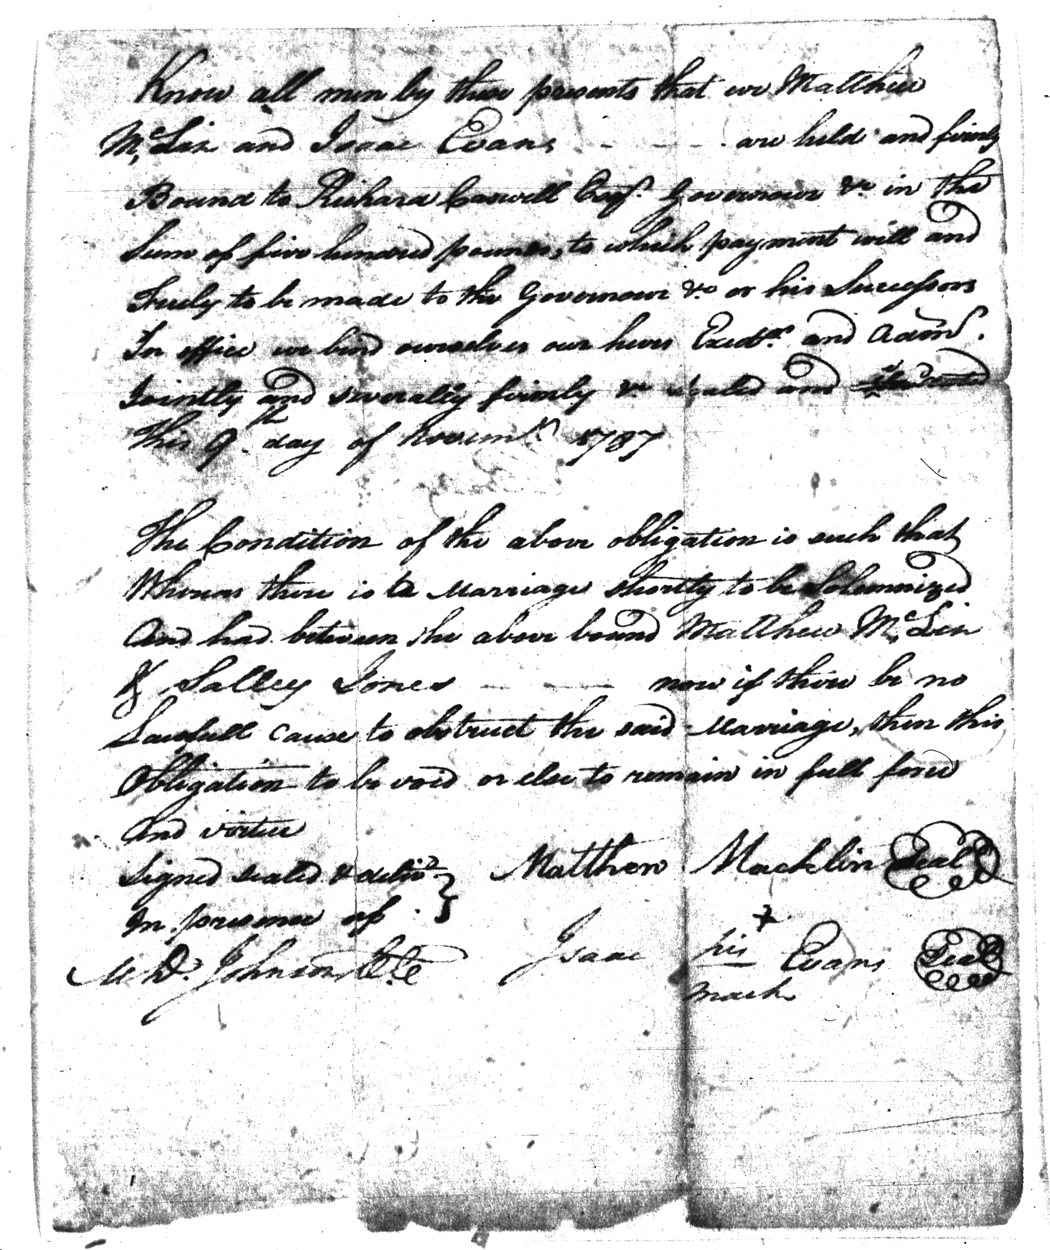 Know all men by these presents that we Matthew
McLin and Isaac Evans - - - - are held and firmly
Bound to Richard Caswell Esqr. Governour &c in the
Sum of five hundred pounds, to which payment will and
Truely to be made to the Governour &c or his Successors
In office we bind ourselves our heirs Exedtrs and Admrs.
Jointly and severally firmly &c Sealed and
This 9th day of Novemr 1787
The Condition of the above obligation is such that
Whereas there is a Marriage shortly to be Solemnized
And had between the above bound Matthew McLin
& Salley Jones - - now if there be no
Lawfull cause to obstruct the said Marriage, then this
Obligation to be void or else to remain in full force
And virtue
Signed sealed & delivd } Matthew Macklin Seal
In presence of
Isaac his x mark Evans Seal
Johnson